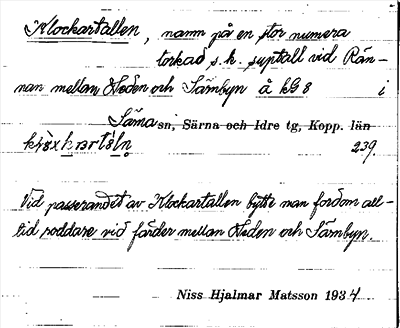 Klockartallen, namn på en stor numera
torkad s.k. suptall vid Rän-
nan mellan Heden och Särnbyn å kb 8 i
Särna sn, Särna och Idre tg, Kopp. län
239.
Vid passerandet av Klockartallen bytte man fordom all-
tid roddare vid färder mellan Heden och Särnbyn.
Niss Hjalmar Matsson 1934